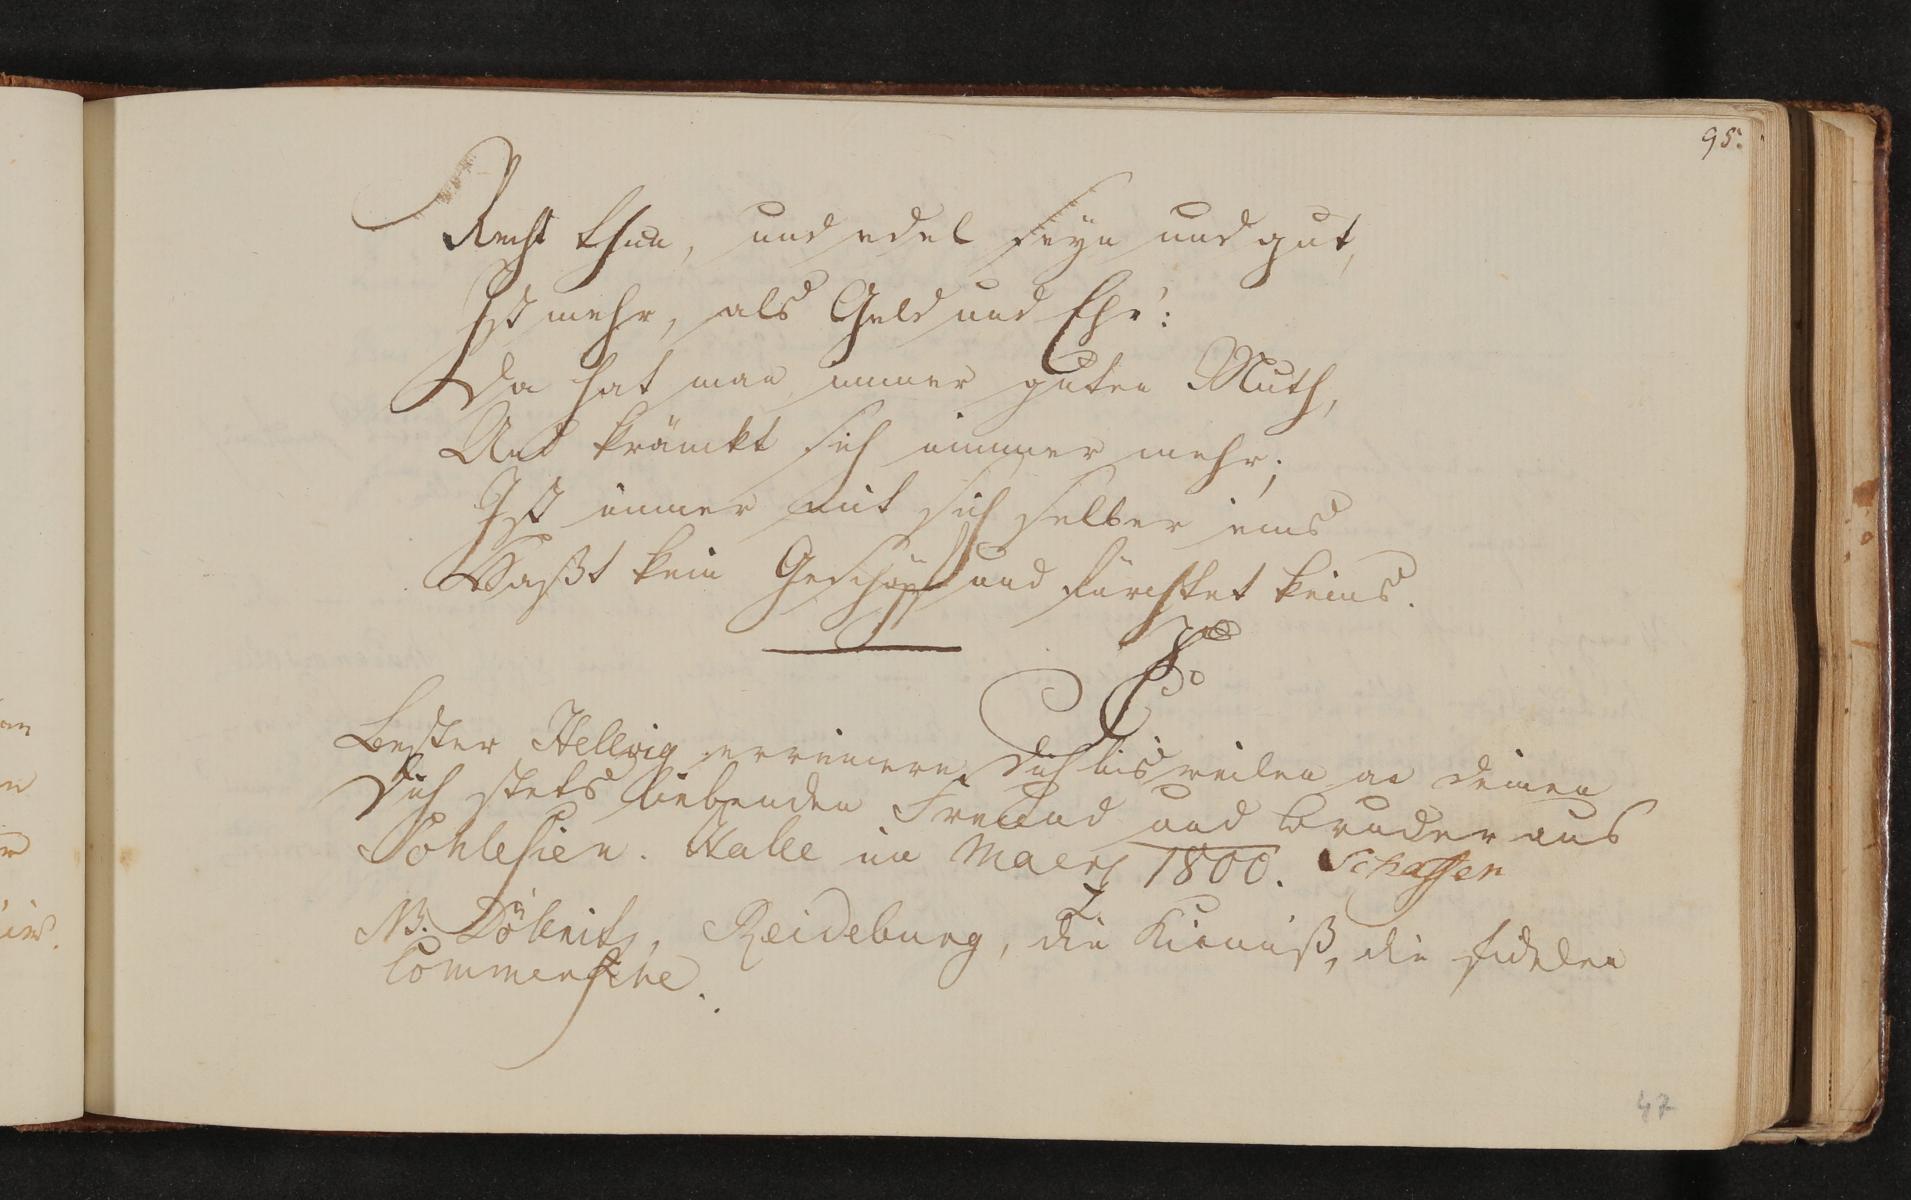 95.
Recht thun, und edel seyn und gut,
Ist mehr, als Geld und Ehr':
Da hat man immer guten Muth,
Und kränckt sich nimmer mehr;
Ist immer mit sich selber eins
Haßt kein Geschöpf und fürchtet keins.
Bester Hellwig errinnere Dich bisweilen an deinen
Dich stets liebenden Freund und Bruder aus
Schlesien. Halle im Maerz 1800. Schaffer
NB. Döllnitz, Reideburg, die Kirmiß, die fidelen
Commersche.
47